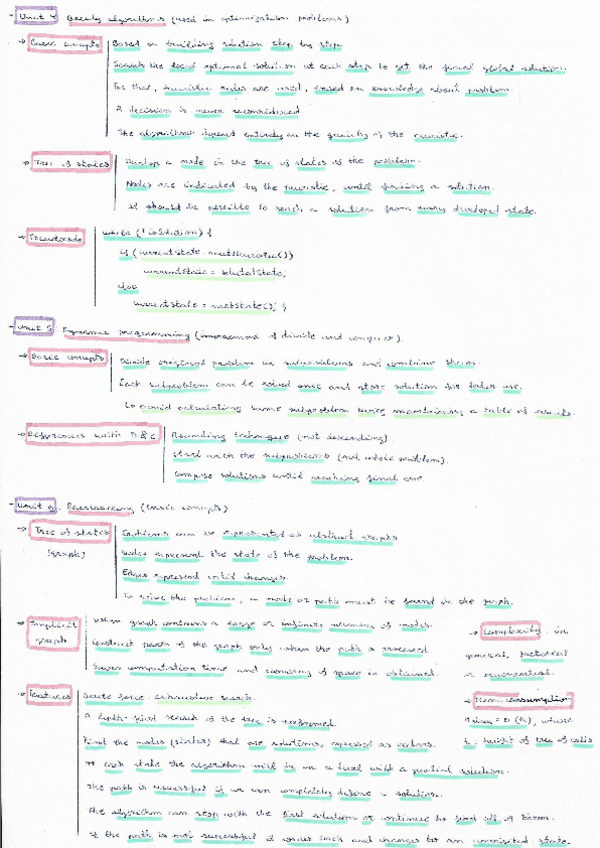 - Unit 4: Greedy algorithms (used in optimization problems)
→ Basic concepts
Based on building solution step by step.
Search the local optimal solution at each step to get the final global solution.
For that, heuristic rules are used, based on knowledge about problem.
A decision is never reconsidered.
The algorithm depend entirely on the quality of the heuristic.
→ Tree of states
Develop a node in the tree of states of the problem.
Nodes are indicated by the heuristic, until finding a solution.
It should be possible to reach a solution from every developed state.
→ Pseudocode
while (! isSolution) {
if (currentState
currentState =
else
currentState = nextState(); }
- Unit 5: Dynamic programming (improvement of divide and conquer).
→ Basic concepts
Divide original problem in subproblems and combine them.
Each subproblem can be solved once and store solution for later use.
to avoid calculating same subproblem twice maintaining a table of results.
→ Differences with D & C
Ascending technique (not descending).
Start with the subproblems (not whole problem).
Compose solutions until reaching final one.
- Unit 6: Backtracking (basic concepts)
→ Tree of states
(graph)
Problems can be represented as abstract graphs
Nodes represent the state of the problem.
Edges represent valid changes.
To solve the problem, a node or path must be found in the graph.
→ Implicit graph
When graph contains a large or infinite number of nodes.
Construct parts of the graph only when the path is
Saves computation time and of space is obtained.
→ Complexity: in
general, factorial
or exponential.
→ Features
Brute force: exhaustive search.
A depth-first search of the tree is performed.
Find the nodes (states) that are solutions, expressed as vectors.
At each state the algorithm will be on a level with a partial solution.
The path is successful if we can completely define a solution.
The algorithm can stop with the first solution or continue to find all of them.
If the path is not successful it comes back and changes to an unvisited state.
→ Mem. consumption
where
h: height of tree of calls